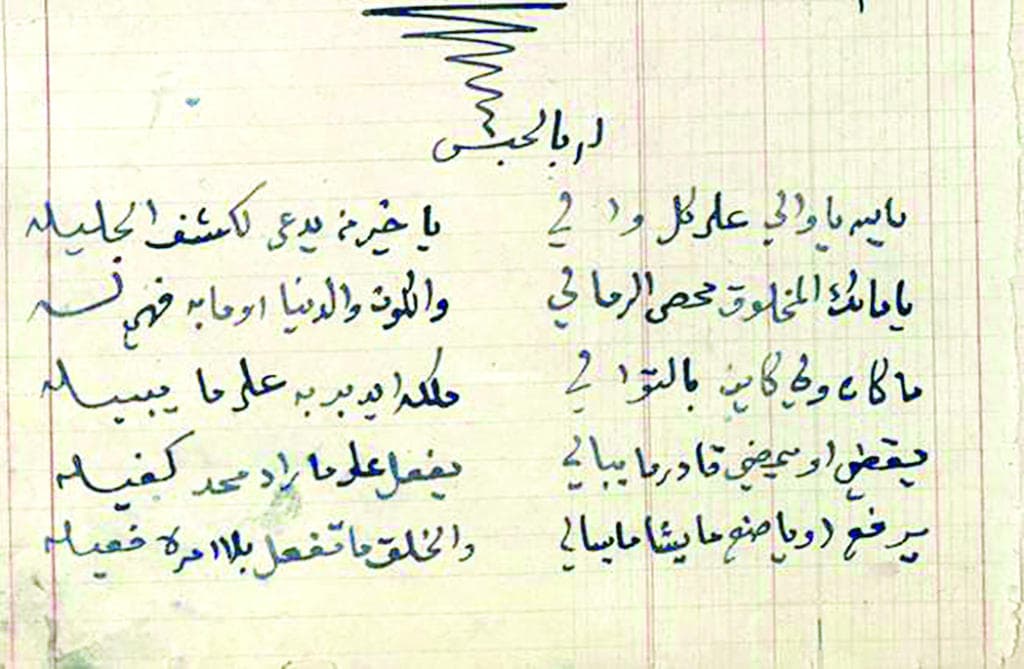 يا الله يا والي على كل والي    يا خير من يدعى لكشف الجليله
يا مالك المخلوق محصي الرمالي    والكون والدنيا او ما به فهي له
ما كان ولي كاين بالتوالي    ملكه ايدبر به على ما يبي له
يقضي او يمضي قادر ما يبالي    يفعل على ما راد محد كفيله
يرفع او يا ضع ما يشا ما يبالي    والخلق ما تفعل بلا امره فعيله